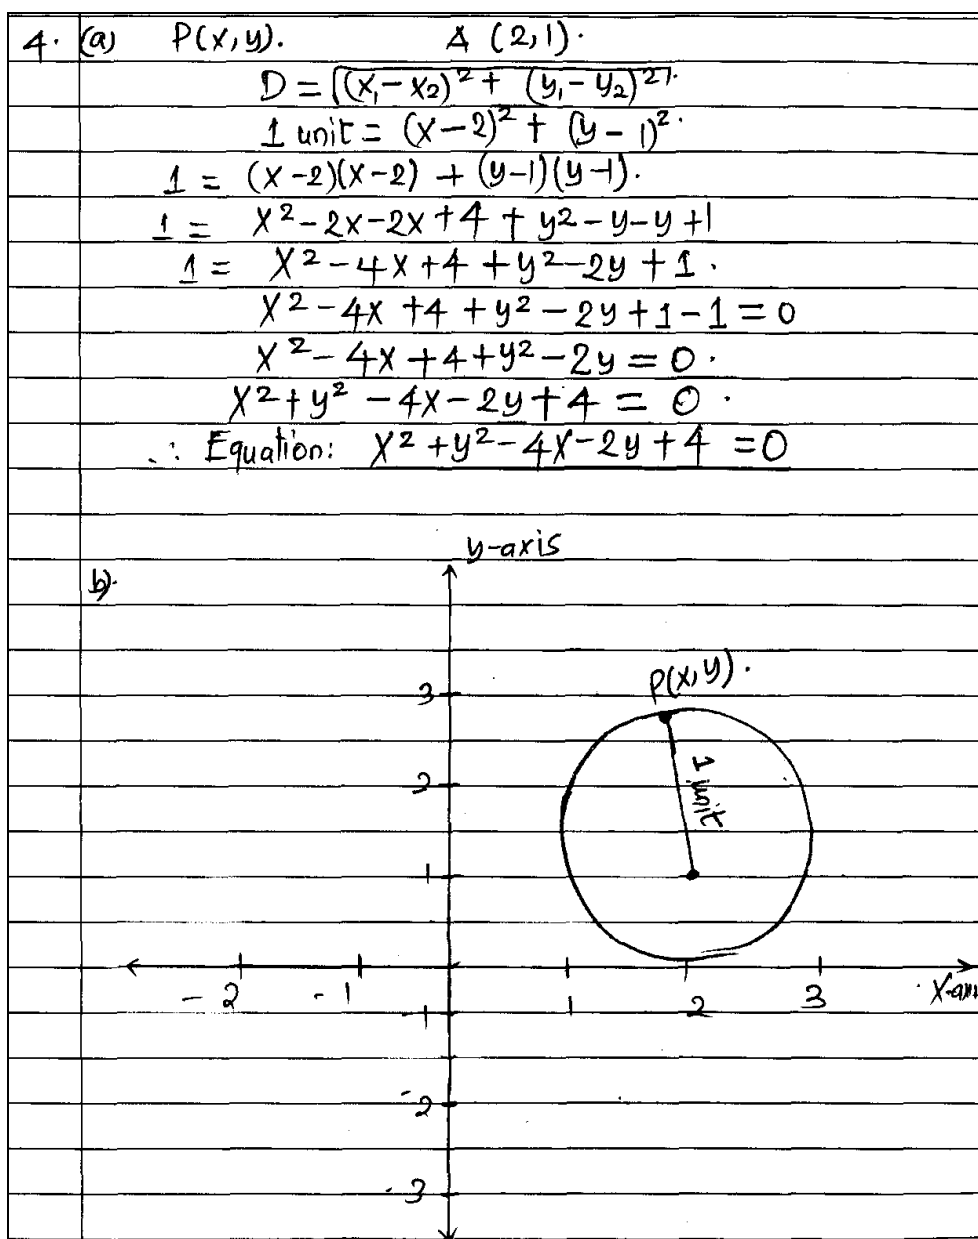 4. (a) P(x,y). A (2,1).
D = √(x₁ – x₂)² + (y₁ – y₂)².
1 unit = (x – 2)² + (y – 1)².
1 = (x – 2)(x – 2) + (y–1)(y–1).
1 = x² – 2x – 2x + 4 + y² – y – y + 1
1 = x² – 4x + 4 + y² – 2y + 1.
x² – 4x + 4 + y² – 2y + 1 – 1 = 0
x² – 4x + 4 + y² – 2y = 0.
x² + y² – 4x – 2y + 4 = 0.
∴ Equation: x² + y² – 4x – 2y + 4 = 0
y-axis
b).
P(x,y).
3
1 unit
2
1
-2 -1 1 2 3 x-axis
-1
-2
-3